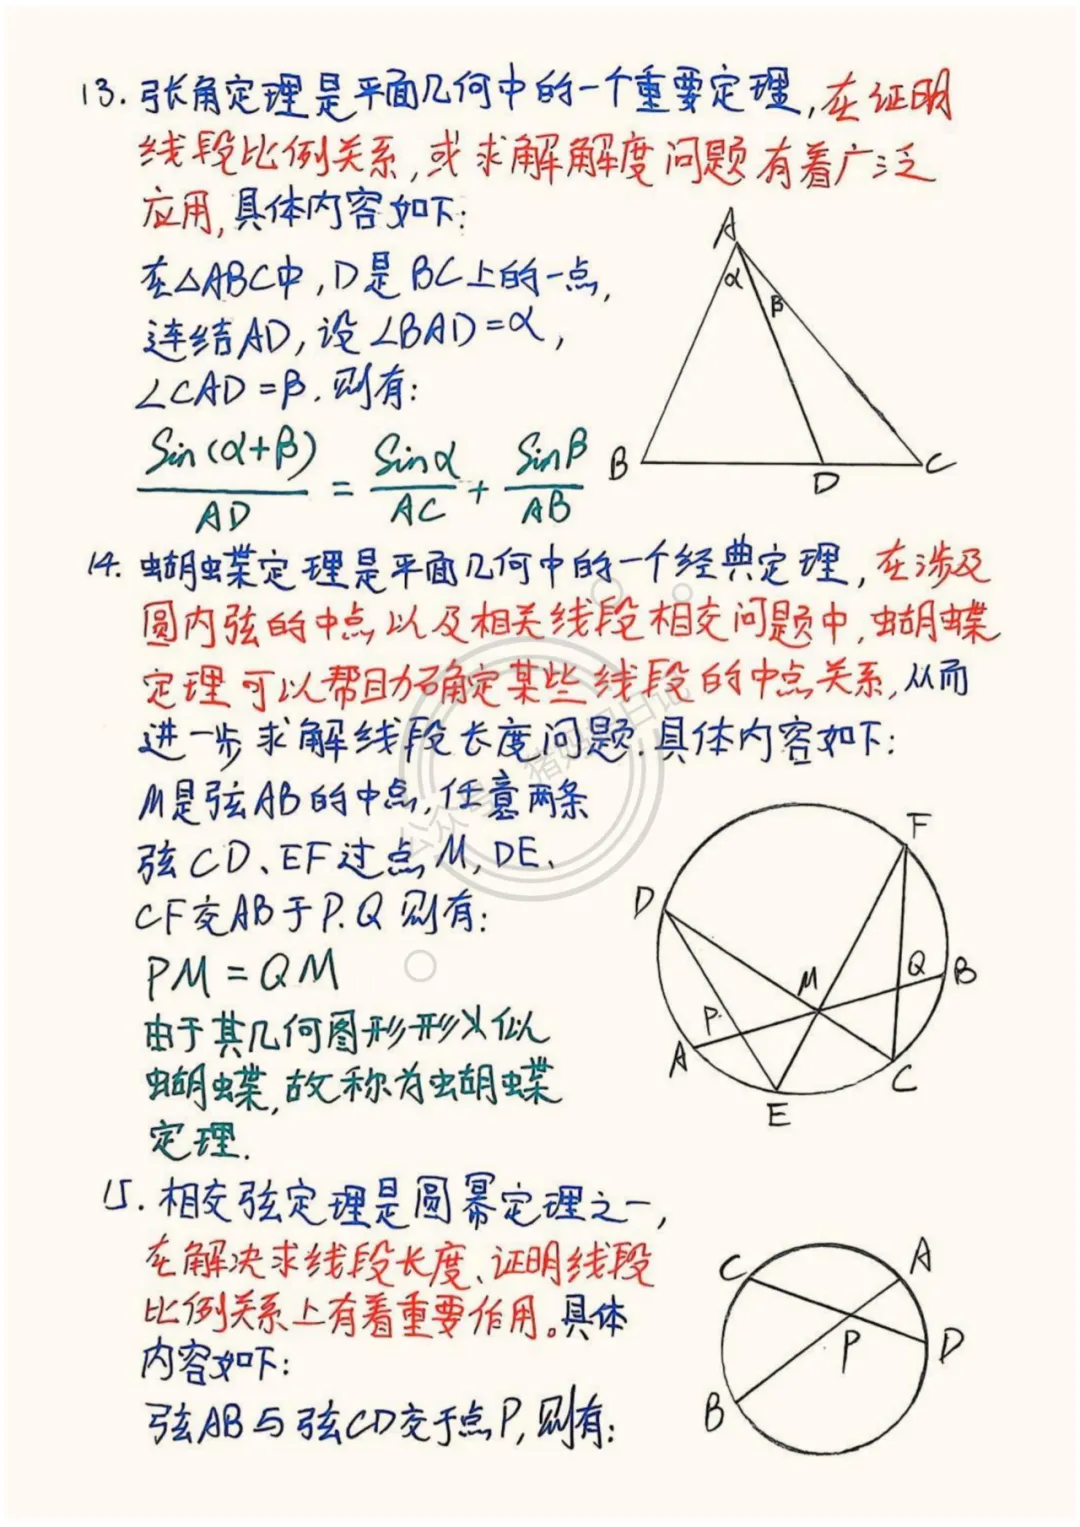 13. 张角定理是平面几何中的一个重要定理,在证明
线段比例关系,或求解解度问题有着广泛
应用,具体内容如下:
在△ABC中,D是BC上的一点,
连结AD,设∠BAD=α,
∠CAD=β.则有:
Sin(α+β)/AD = Sinα/AC + Sinβ/AB
A
α
β
B
D
C
14. 蝴蝶定理是平面几何中的一个经典定理,在涉及
圆内弦的中点以及相关线段相交问题中,蝴蝶
定理可以帮助确定某些线段的中点关系,从而
进一步求解线段长度问题.具体内容如下:
M是弦AB的中点,任意两条
弦CD、EF过点M,DE、
CF交AB于P.Q则有:
PM=QM
由于其几何图形形状似
蝴蝶,故称为蝴蝶
定理.
F
D
M
Q
B
P
A
C
E
公众号 猪妈妈日记
15. 相交弦定理是圆幂定理之一,
在解决求线段长度、证明线段
比例关系上有着重要作用。具体
内容如下:
弦AB与弦CD交于点P,则有:
C
A
P
D
B